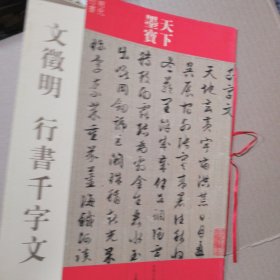 天下
墨寶
文徵明 行書千字文
千字文
天地玄黃宇宙洪荒日月盈
昃辰宿列張寒來暑往秋收
冬藏閏餘成歲律呂調陽雲
騰致雨露結為霜金生麗水玉
出崑岡劍號巨闕珠稱夜光果
珍李柰菜重芥薑海鹹河淡